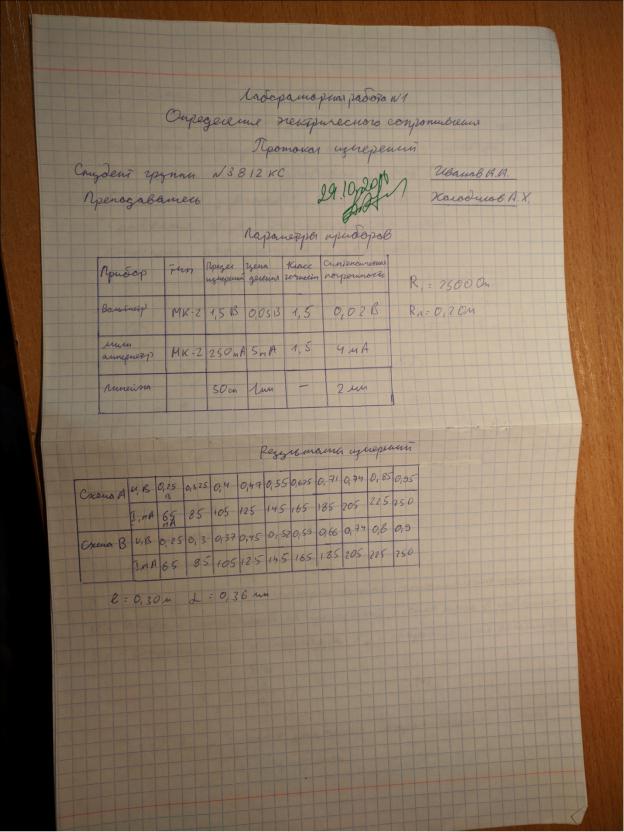 Лабораторная работа №1
Определения электрического сопротивления
Протокол измерений
Студент группы №3812КС
Преподаватель Холодилов А.Х.
Параметры приборов
Прибор Тип Предел измерений Цена деления Класс точности Систематическая погрешность
Вольтметр МК-2 1,5 В 0,05В 1,5 0,02 В
Милли амперметр МК-2 250мА 5мА 1,5 4 мА
Линейка 50см 1мм — 2 мм
R₁ = 2500 Ом
Rл = 0,2 Ом
Результаты измерений
Схема А U, В 0,25 В 0,325 0,4 0,47 0,55 0,625 0,71 0,74 0,85 0,95
I, мА 65 мА 85 105 125 145 165 185 205 225 250
Схема В U, В 0,25 0,3 0,37 0,45 0,52 0,59 0,66 0,74 0,8 0,9
I, мА 65 85 105 125 145 165 185 205 225 250
l = 0,30 м d = 0,36 мм